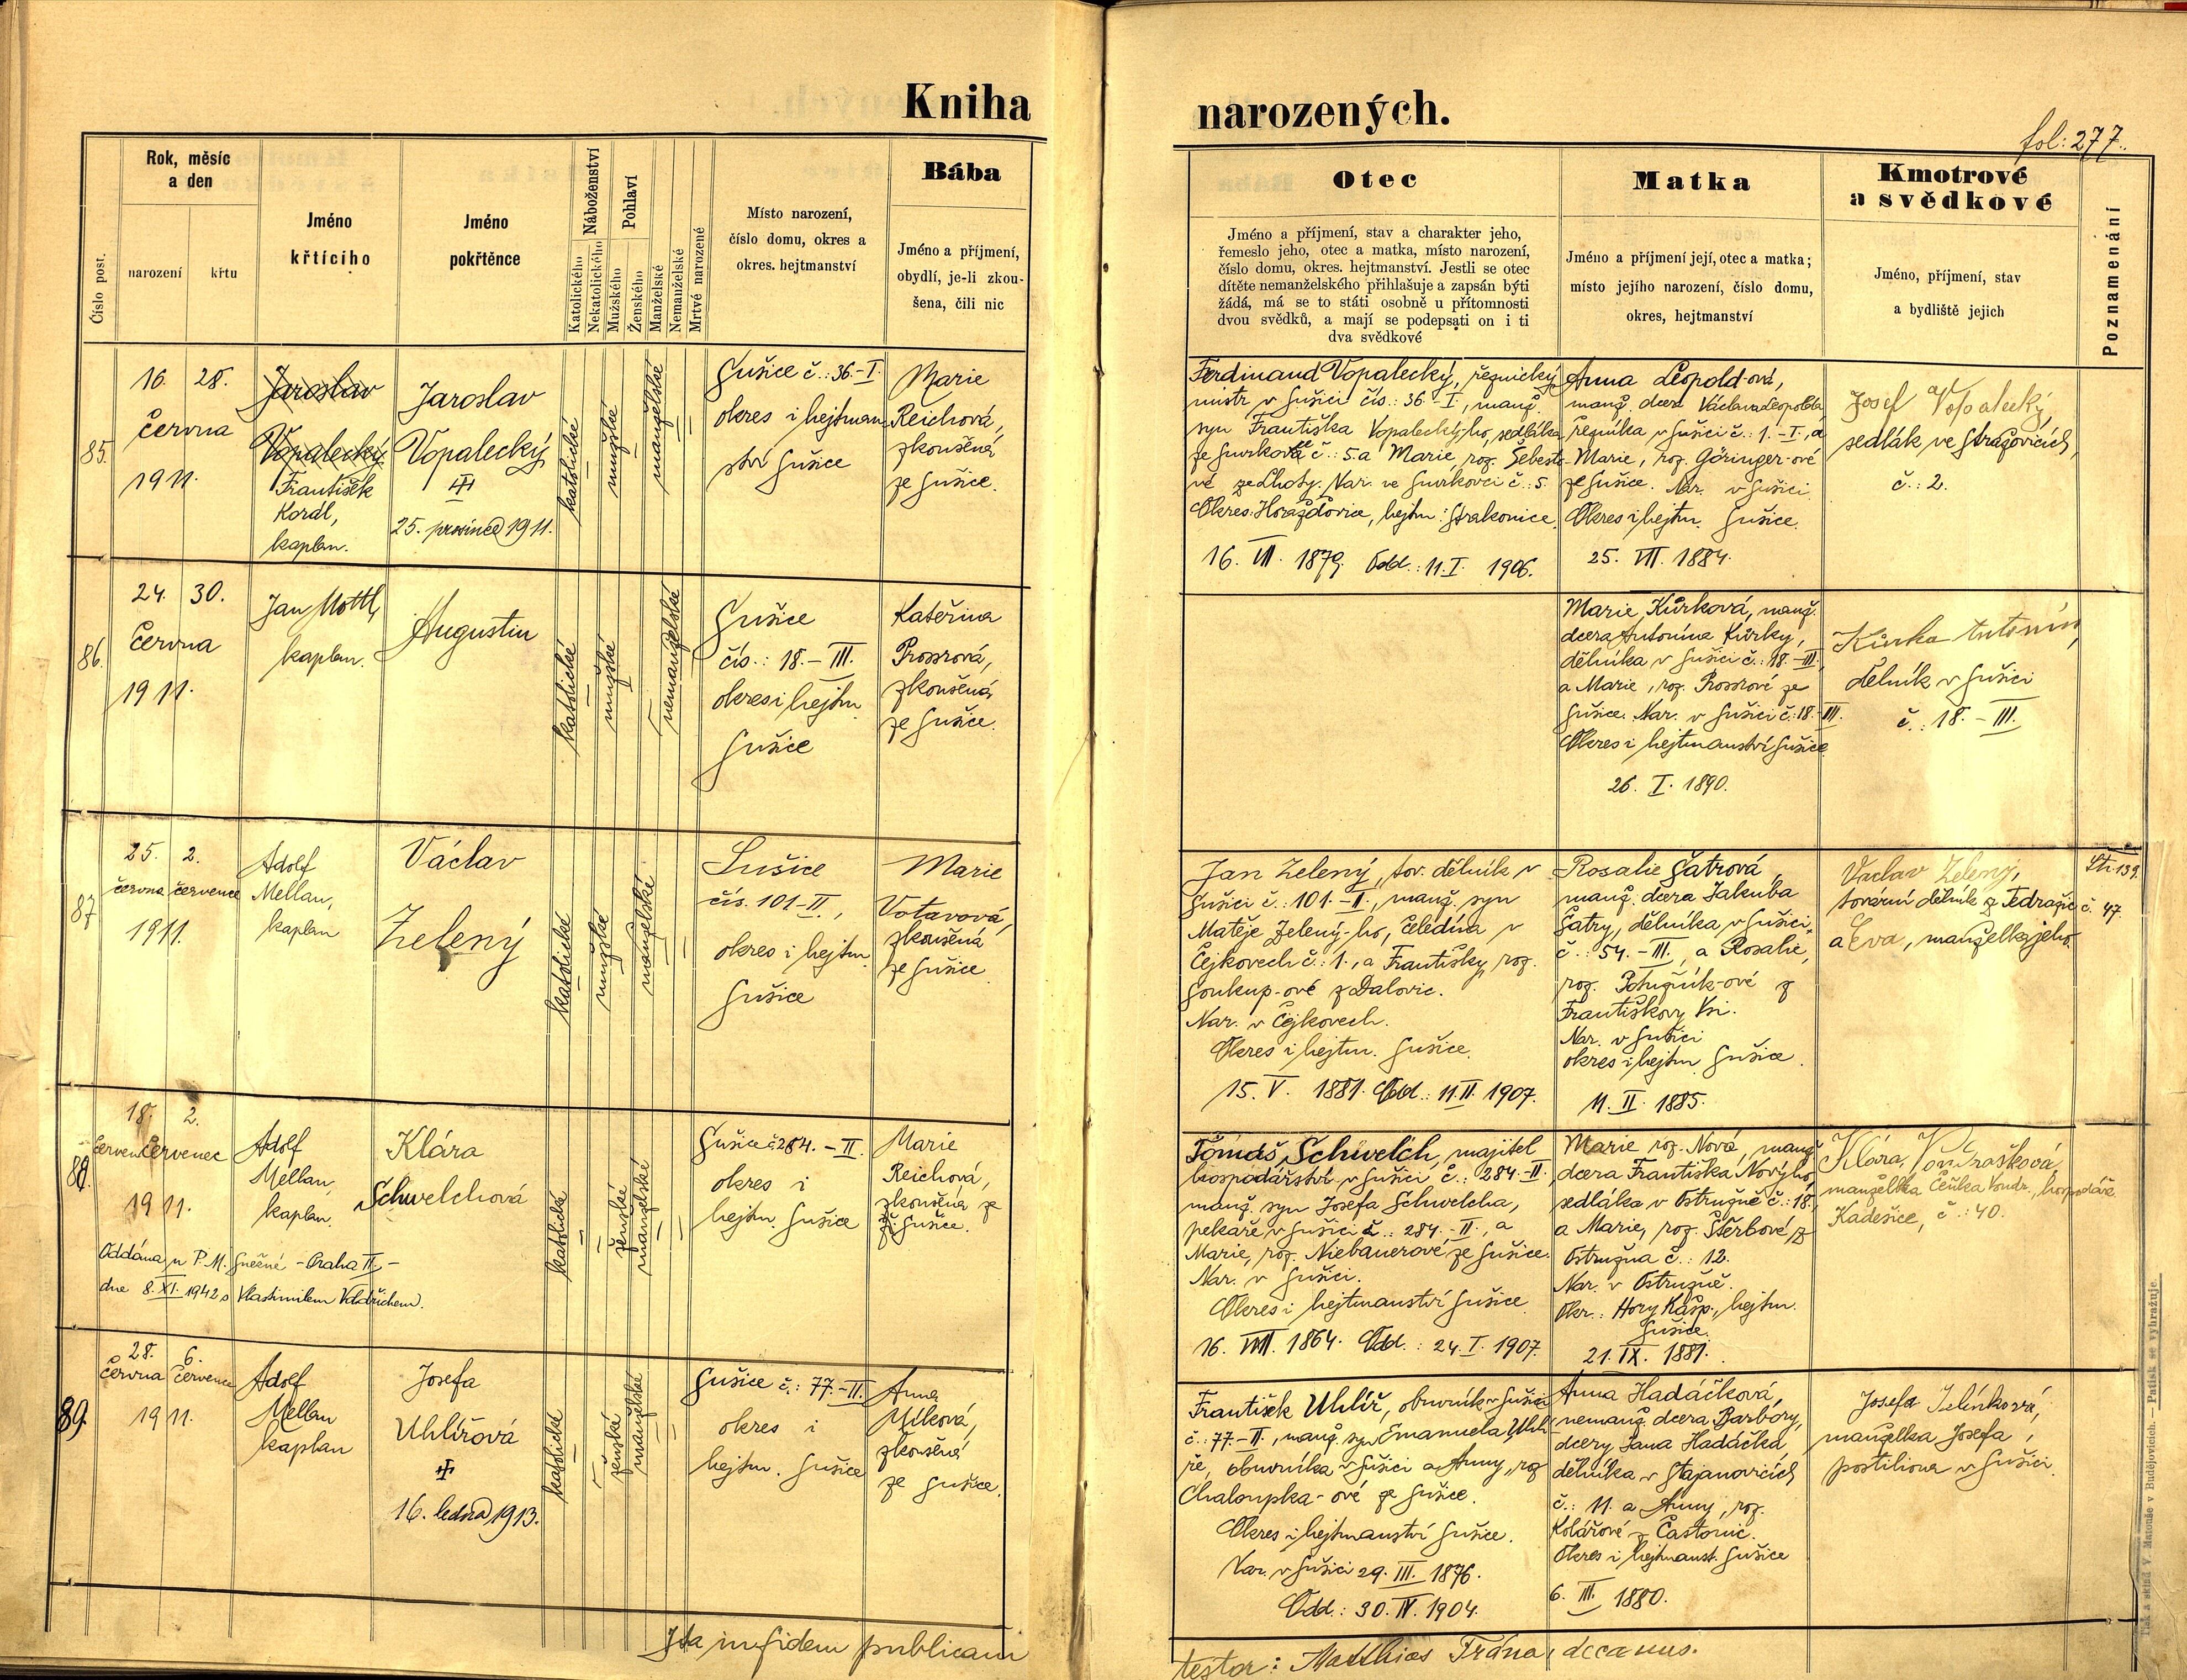 Kniha narozených.
fol: 277.
Číslo post.
Rok, měsíc
a den
narození
křtu
Jméno
křtícího
Jméno
pokřtěnce
Náboženství
Katolického
Nekatolického
Pohlaví
Mužského
Ženského
Manželské
Nemanželské
Mrtvé narozené
Místo narození,
číslo domu, okres a
okres. hejtmanství
Bába
Jméno a příjmení,
obydlí, je-li zkou-
šena, čili nic
Otec
Jméno a příjmení, stav a charakter jeho,
řemeslo jeho, otec a matka, místo narození,
číslo domu, okres. hejtmanství. Jestli se otec
dítěte nemanželského přihlašuje a zapsán býti
žádá, má se to státi osobně u přítomnosti
dvou svědků, a mají se podepsati on i ti
dva svědkové
Matka
Jméno a příjmení její, otec a matka;
místo jejího narození, číslo domu,
okres, hejtmanství
Kmotrové
a svědkové
Jméno, příjmení, stav
a bydliště jejich
Poznamenání
85.
16. 28.
června
1911.
Jaroslav
Vopalecký
František
Kordl,
kaplan.
Jaroslav
Vopalecký
25. prosince 1911.
katolické
mužské
manželské
Sušice č.: 36.-I.
okres i hejtman
ství Sušice
Marie
Reichová,
zkoušená
ze Sušice.
Ferdinand Vopalecký, řeznický
mistr v Sušici čís.: 36.-I., manž.
syn Františka Vopaleckého, sedláka
ze Smrkovce č.: 5. a Marie, roz. Šebesto-
vé ze Lhoty. Nar. ve Smrkovci č.: 5.
Okres: Horažďovice, hejtm: Strakonice.
16. VII. 1879. Odd.: 11. I. 1906.
Anna Leopold-ová,
manž. dcera Václava Leopolda,
řezníka v Sušici č.: 1.-I., a
Marie, roz. Göringer-ové
ze Sušice. Nar. v Sušici.
Okres i hejtm. Sušice.
25. VII. 1884.
Josef Vopalecký,
sedlák ve Strašovicích,
č.: 2.
86.
24. 30.
června
1911.
Jan Mottl,
kaplan.
Augustin
katolické
mužské
nemanželské
Sušice
čís.: 18.-III.
okres i hejtm.
Sušice
Kateřina
Prossrová,
zkoušená
ze Sušice.
Marie Kůrková, manž.
dcera Antonína Kůrky,
dělníka v Sušici č.: 18.-III.
a Marie, roz. Prossrové ze
Sušice. Nar. v Sušici č.: 18.-III.
Okres i hejtmanství Sušice
26. I. 1890.
Kůrka Antonín,
dělník v Sušici
č.: 18.-III.
87
25. 2.
června července
1911.
Adolf
Mellan,
kaplan
Václav
Zelený
katolické
mužské
manželské
Sušice
čís. 101-II.,
okres i hejtm.
Sušice
Marie
Votavová,
zkoušená
ze Sušice.
Jan Zelený, tov. dělník v
Sušici č.: 101.-II., manž. syn
Matěje Zelený-ho, čeledína v
Čejkovech č.: 1., a Františky, roz.
Soukup-ové z Dalovic.
Nar. v Čejkovech.
Okres i hejtm. Sušice.
15. V. 1881. Odd.: 11. II. 1907.
Rosalie Šatrová,
manž. dcera Jakuba
Šatry, dělníka v Sušici,
č.: 54.-III., a Rosalie,
roz. Potužník-ové z
Františkovy Vsi.
Nar. v Sušici
okres i hejtm. Sušice.
11. II. 1885.
Václav Zelený,
tovární dělník z Tedražic č. 47.
a Eva, manželka jeho.
Str. 139.
88.
18. 2.
červen červenec
1911.
Adolf
Mellan,
kaplan.
Klára
Schwelchová
Oddána u P. M. Sněžné - Praha II. -
dne 8. XI. 1942 s Vlastimilem Voldřichem.
katolické
ženské
manželské
Sušice č. 284.-II.
okres i
hejtm. Sušice
Marie
Reichová,
zkoušená ze
Sušice.
Tomáš Schwelch, majitel
hospodářství v Sušici č.: 284.-II.
manž. syn Josefa Schwelcha,
pekaře v Sušici č.: 284.-II., a
Marie, roz. Niebauerové, ze Sušice.
Nar. v Sušici.
Okres i hejtmanství Sušice.
16. VIII. 1864. Odd.: 24. I. 1907.
Marie roz. Nová, manž.
dcera Františka Nového,
sedláka v Ostružně č.: 18.,
a Marie, roz. Štěrbové, z
Ostružna č.: 12.
Nar. v Ostružně.
Okr.: Hory Kašp., hejtm.
Sušice.
21. IX. 1881.
Klára Vondrašková,
manželka Čeňka Vondr., hospodáře
Kadešice, č.: 40.
89.
28. 6.
června července
1911.
Adolf
Mellan
kaplan
Josefa
Uhlířová
16. ledna 1913.
katolické
ženské
manželské
Sušice č.: 77.-II.
okres i
hejtm. Sušice
Anna
zkoušená
ze Sušice.
František Uhlíř, obuvník v Sušici
č.: 77.-II., manž. syn Emanuela Uhlí-
ře, obuvníka v Sušici a Anny, roz.
Chaloupka-ové ze Sušice.
Okres i hejtmanství Sušice.
Nar. v Sušici 29. III. 1876.
Odd.: 30. IV. 1904.
Anna Hadáčková,
nemanž. dcera Barbory,
dcery Jana Hadáčka,
dělníka v Stajanovicích
č.: 11. a Anny, roz.
Kolářové z Častonic.
Okres i hejtmanst. Sušice
6. III. 1880.
Josefa Jelínková,
manželka Josefa,
postiliona v Sušici.
Ita in fidem publicam
testor: Matthias Frána, decanus.
Tisk a sklad V. Matouše v Budějovicích. — Patisk se vyhrazuje.